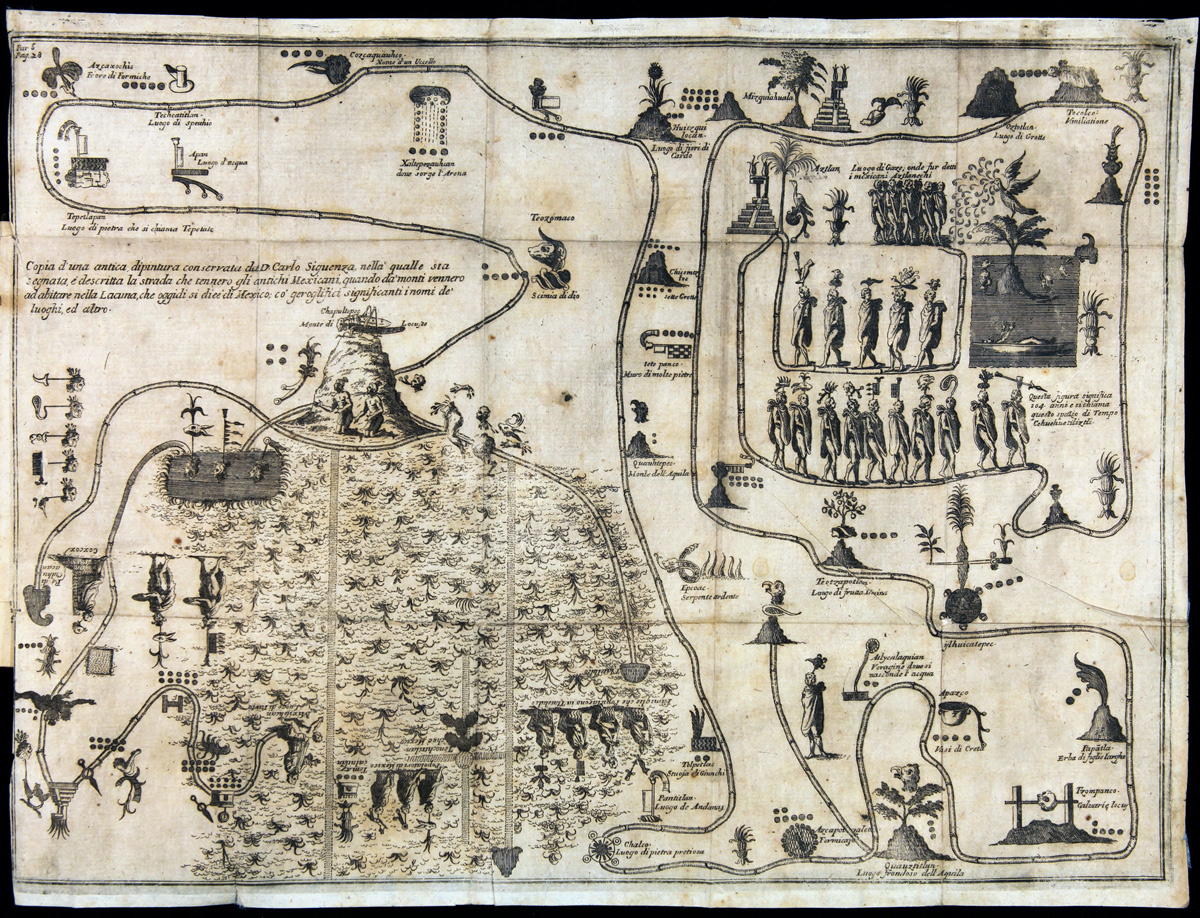 Par 6
Pag. 28
Azcaxochis
Fiore di Formiche
Cozcaquauhco
Nome d'un Uccello
Techcatitlan
Luogo di specchio
Apan
Luogo d'acqua
Xaltepozauhcan
doue sorge l'Arena
Tepetlapan
Luogo di pietra che si chiama Tepetate
Teozomaco
Scimia di dio
Copia d'una antica dipintura conservata da D. Carlo Siguenza, nella qualle sta
segnata, e descritta la strada che tennero gli antichi Mexicani, quando da' monti vennero
ad abitare nella Lacuna, che oggidi si dice di Mexico; co' geroglifici significanti i nomi de'
luoghi, ed altro.
Chapultepec
Monte di Locuste
Huitzqui
locan
Luogo di fiori di
Cardo
Mizquiahuala
Oztotlan
Luogo di Grotte
Tocolco
Vmiliatione
Aztlan
Luogo di Garze, onde fur detti
i mexicani Aztlanechi
Chicomoz
toc
sette Grotte
tete panco
Muro di molte pietre
Quauhtepec
Monte dell'Aquila
Questa figura significa
104 anni e si chiama
questo spatio di Tempo
Cehuehuetiliztli
Epcoac
Serpente ardente
Teotzapotlan
Luogo di frutta Diuina
ylhuicatepec
Atlycalaquian
Voragine doue si
nasconde l'acqua
Apazco
Vasi di Creta
Papatla
Erba di foglie larghe
Tzompanco
Caluarie locus
Tolpetlac
Stuoja di Giunchi
Pantitlan
Luogo de Andanas
Chalco
Luogo di pietra pretiosa
Azcapotzalco
Formicajo
Quauztitlan
Luogo frondoso dell'Aquila
Coxcox
Tenochtitlan